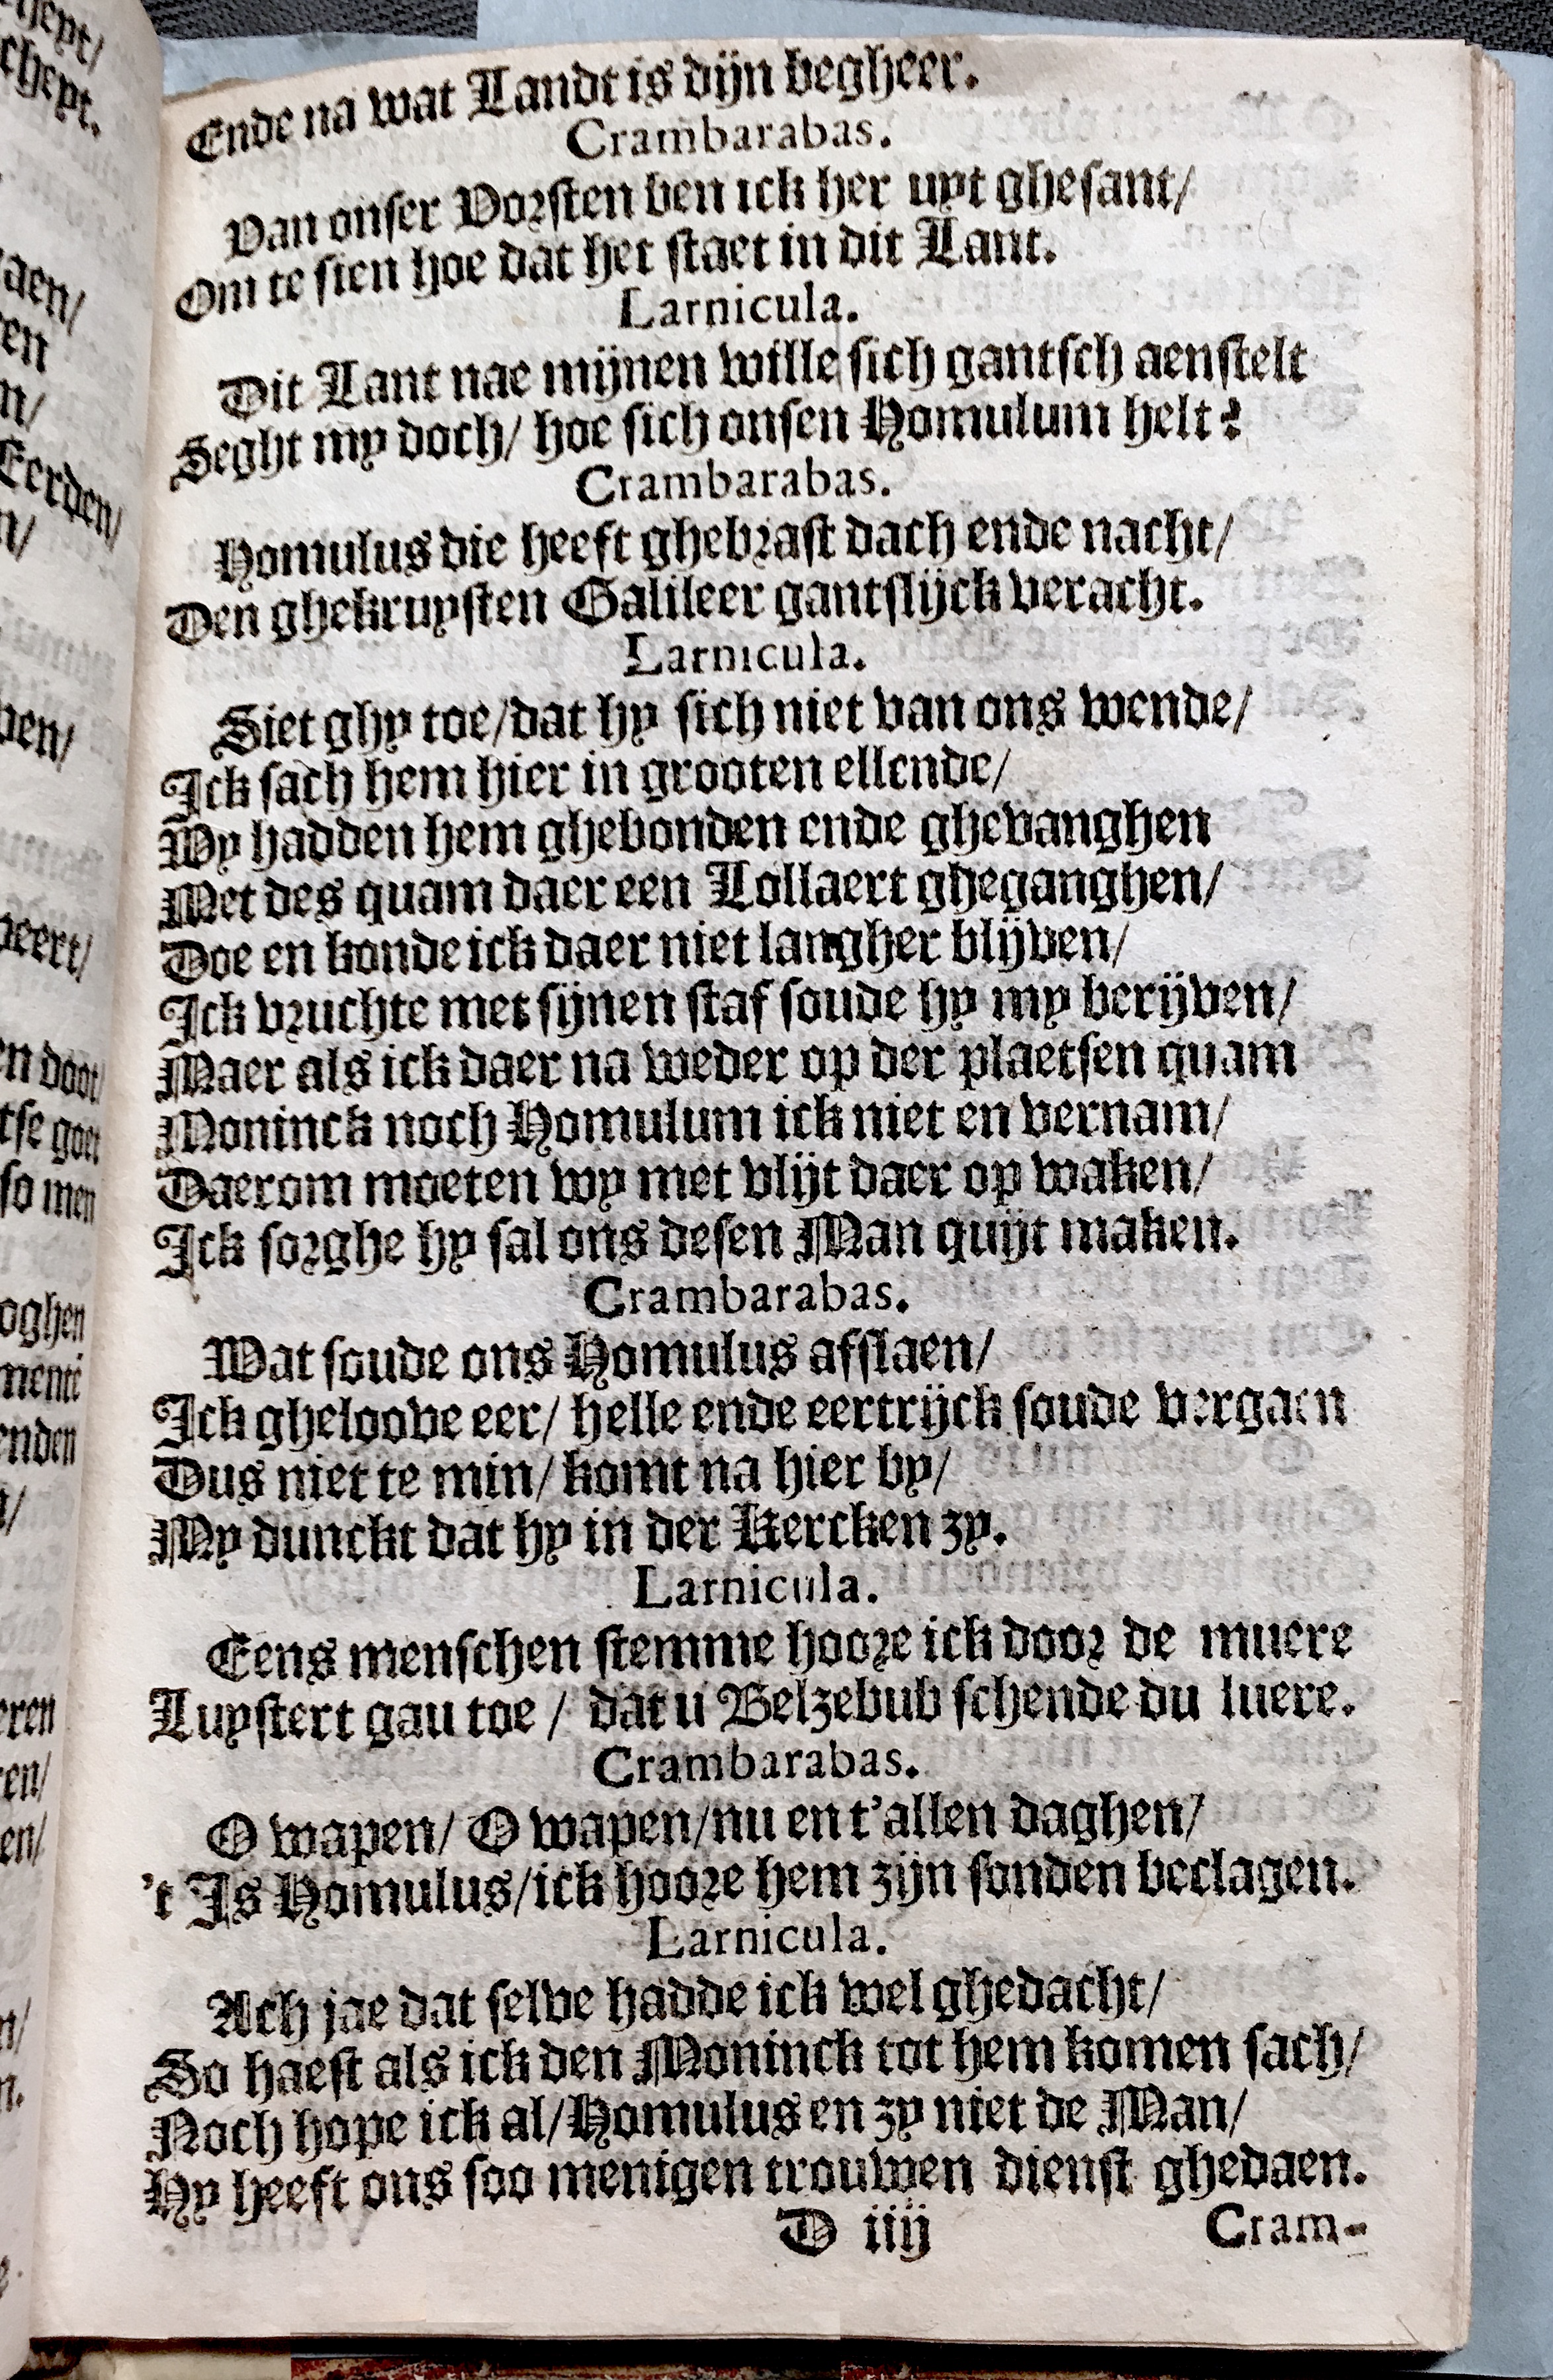 Ende na wat Landt is dijn begheer.
Crambarabas.
Van onser Vorsten ben ick her uyt ghesant/
Om te sien hoe dat het staet in dit Lant.
Larnicula.
Dit Lant nae mijnen wille sich gantsch aenstelt
Seght my doch/ hoe sich onsen Homulum helt?
Crambarabas.
Homulus die heeft ghebrast dach ende nacht/
Den ghekruysten Galileer gantslijck veracht.
Larnicula.
Siet ghy toe/dat hy sich niet van ons wende/
Ick sach hem hier in grooten ellende/
Wy hadden hem ghebonden ende ghevanghen
Met des quam daer een Lollaert ghegANghen/
Doe en konde ick daer niet langher blijven/
Ick vruchte met sijnen staf soude hy my berijven/
Maer als ick daer na weder op der plaetsen quam
Moninck noch Homulum ick niet en vernam/
Daerom moeten wy met vlijt daer op waken/
Ick sorghe hy sal ons desen Man quijt maken.
Crambarabas.
Wat soude ons Homulus afslaen/
Ick gheloove eer/ helle ende eertrijck soude vergaen
Dus niet te min/ komt na hier by/
My dunckt dat hy in der Kercken zy.
Larnicula.
Eens menschen stemme hoore ick door de muere
Luystert gau toe / dat u Belzebub schende du luere.
Crambarabas.
O wapen/ O wapen/nu en t'allen daghen/
't Is Homulus/ick hoore hem zijn sonden beclagen.
Larnicula.
Ach jae dat selve hadde ick wel ghedacht/
So haest als ick den Moninck tot hem komen sach/
Noch hope ick al/Homulus en zy niet de Man/
Hy heeft ons soo menigen trouwen dienst ghedaen.
D iiij
Cram-